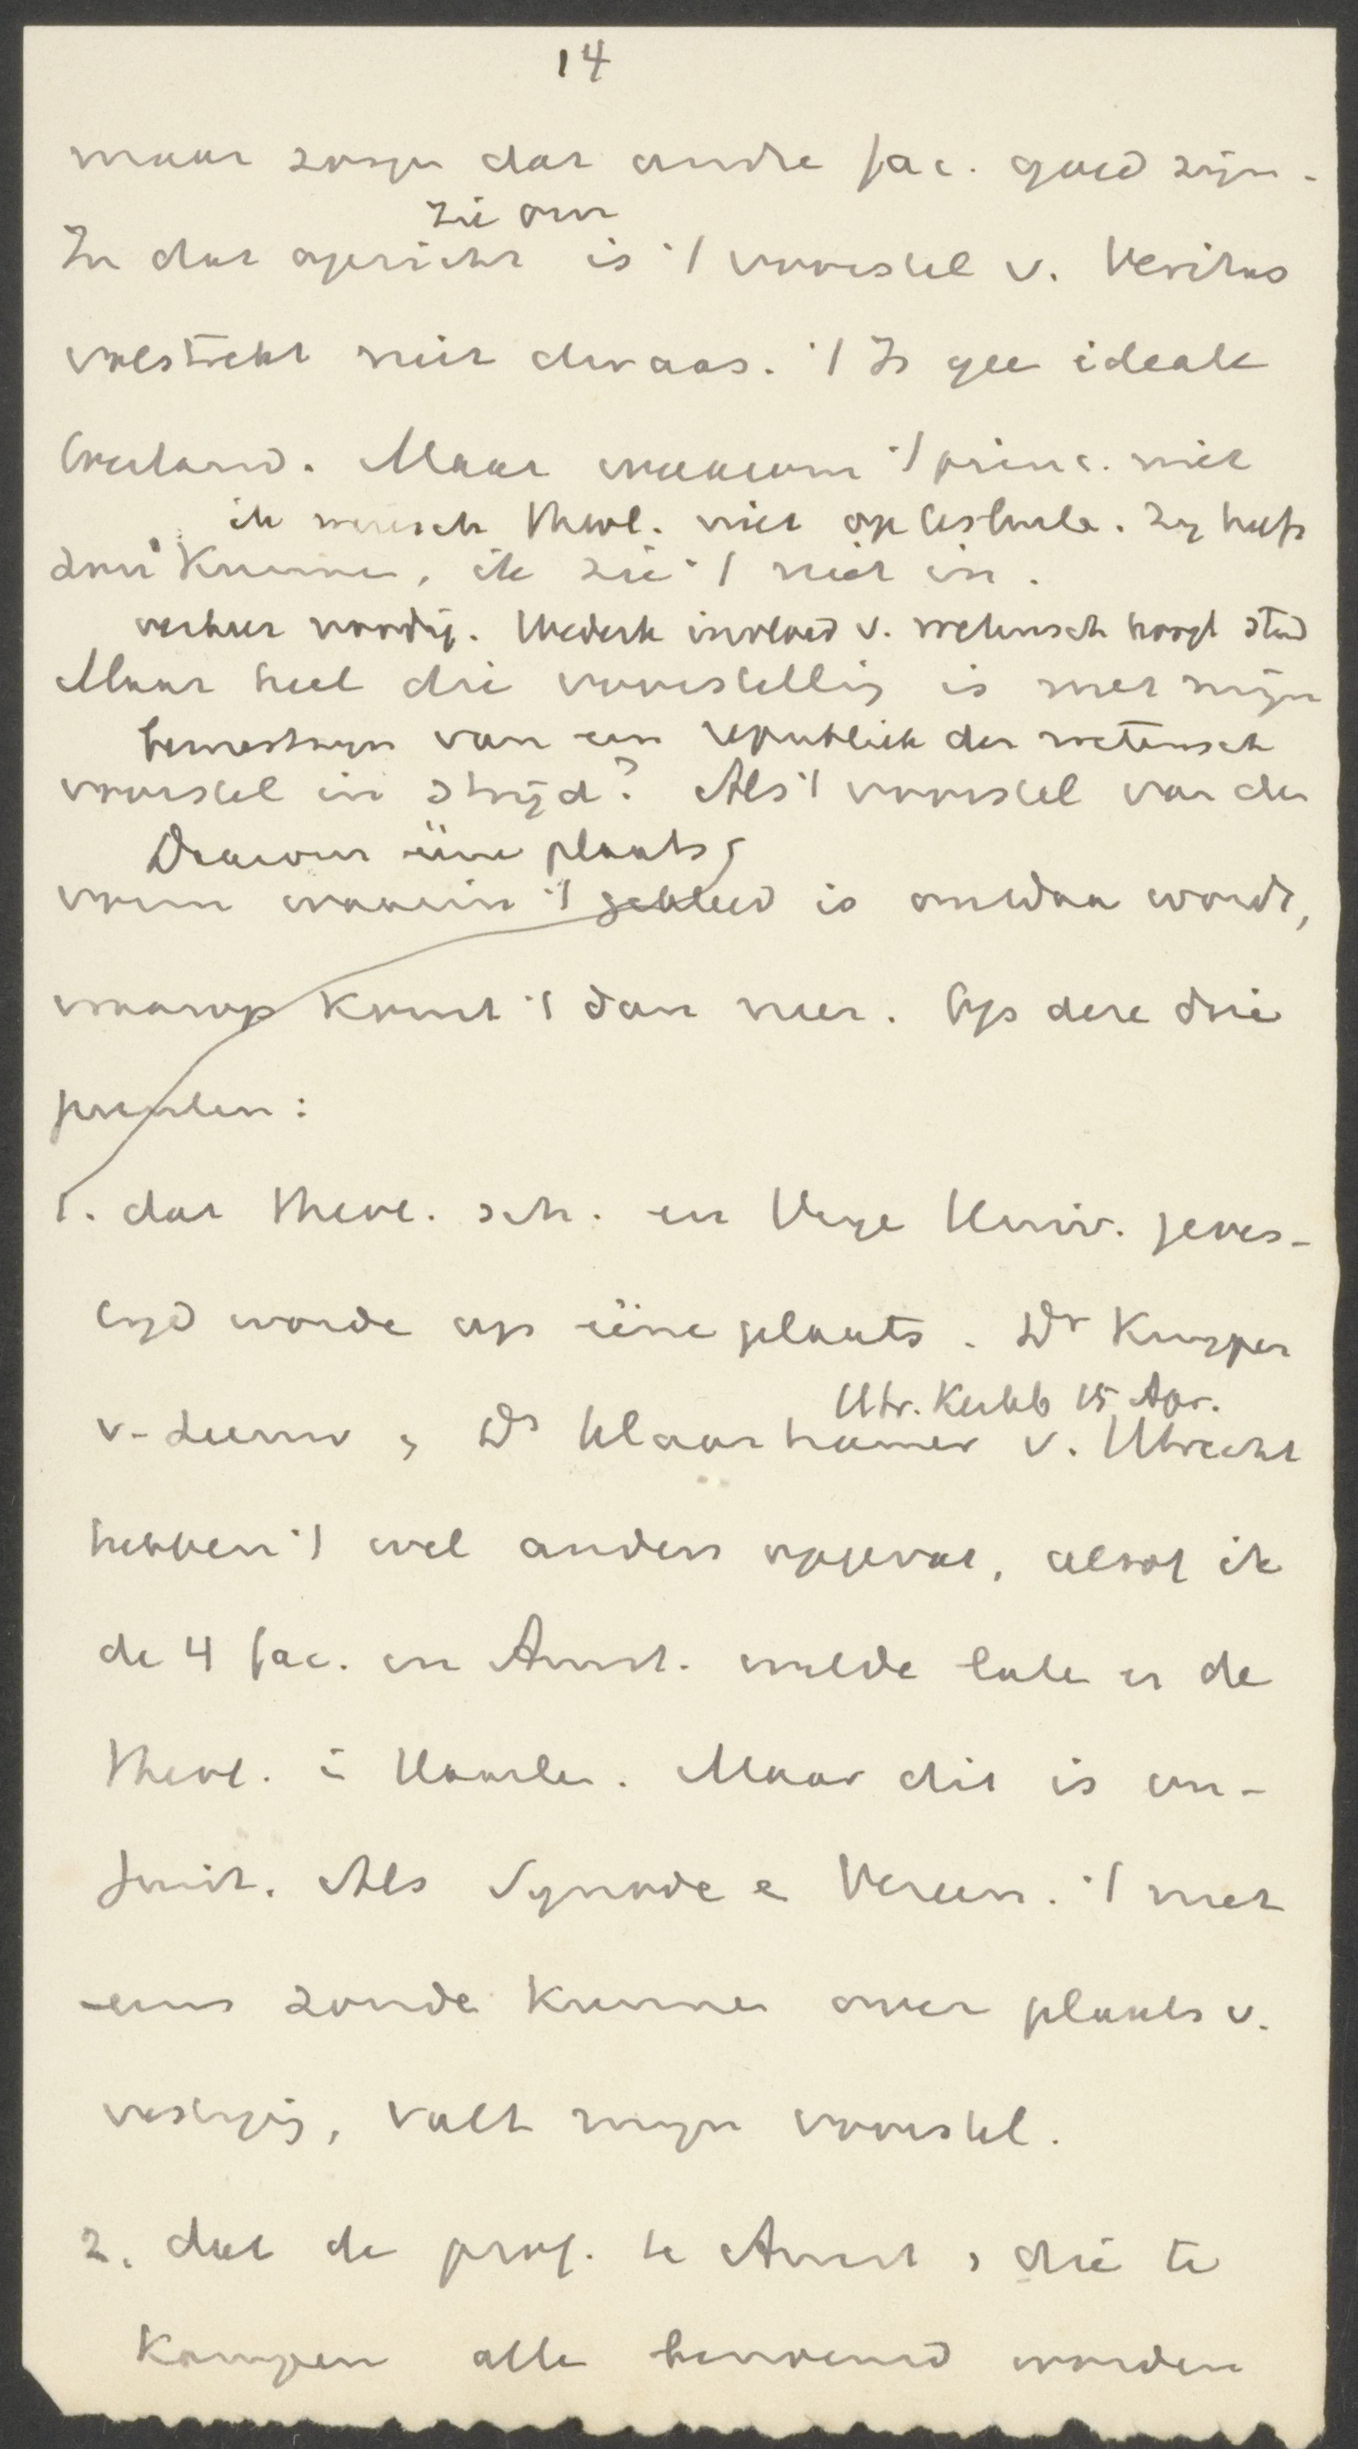 14
maar zorgen dat andre fac. goed zijn.
zie om
In dat opzicht is 't voorstel v. Veritas
volstrekt niet dwaas. 't Is gee ideale
toestand. Maar waarom 't princ. niet
ik wensch Theol. niet op zichzelf. Zy heeft
zou kunnen, ik zie 't niet in.
verkeer noodig. Wederk invloed v. wetensch hoogl stud
Maar heel die voorstelling is met mijn
van een republiek der wetensch
voorstel in strijd? Als 't voorstel van den
Daarom ééne plaats
vorm waarin 't gekleed is ontdaan wordt,
waarop komt 't dan neer. Op deze drie
punten:
1. dat Theol. sch. en Vrye Univ. geves-
tigd worde op ééne plaats. Dr Kuyper
v. Leeuw, Ds Klaarhamer v. Utrecht
Utr. Kerkb 15 Apr.
hebben 't wel anders opgevat, alsof ik
de 4 fac. in Amst. wilde late en de
Theol. i Haarlem. Maar dit is on-
juist. Als Synode e Vereen. 't niet
eens zoude kunnen over plaats v.
vestiging, valt mijn voorstel.
2. dat de prof. te Amst, die te
Kampen alle benoemd worden